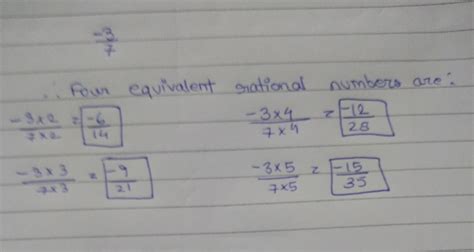 -3/7
∴ Four equivalent rational numbers are:
-3×2/7×2 = -6/14    -3×4/7×4 = -12/28
-3×3/7×3 = -9/21    -3×5/7×5 = -15/35